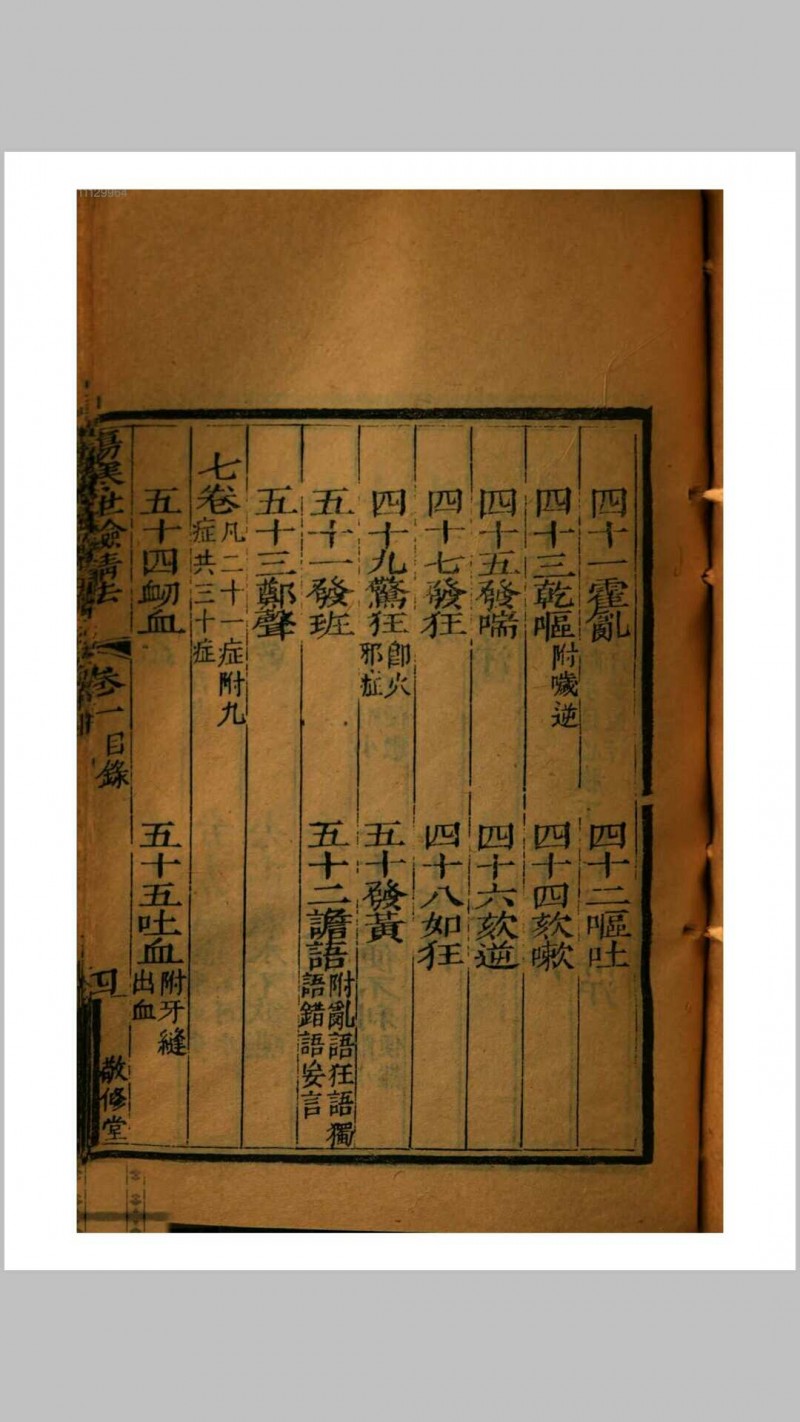 11129964
四十一霍亂 四十二嘔吐
四十三乾嘔附噦逆 四十四欬嗽
四十五發喘 四十六欬逆
四十七發狂 四十八如狂
四十九驚狂卽火邪症 五十發黃
五十一發班 五十二譫語附亂語狂語獨語錯語妄言
五十三鄭聲
七卷凡二十一症附九症共三十症
五十四衂血 五十五吐血附牙縫出血
傷寒世驗精法 卷一目錄 四 敬修堂